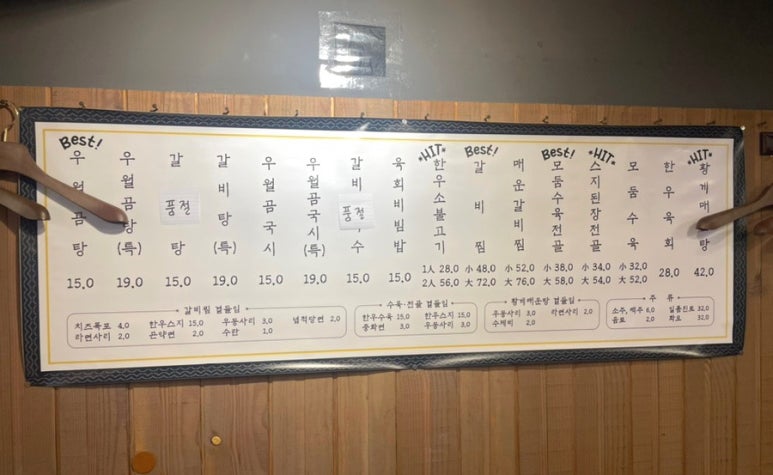 Best!
우월곰탕
15.0
우월곰탕(특)
19.0
갈 품절 탕
15.0
갈비탕(특)
19.0
우월곰국시
15.0
우월곰국시(특)
19.0
갈비 품절 수
15.0
육회비빔밥
15.0
*HIT*
한우소불고기
1人 28.0
2人 56.0
Best!
갈비찜
小 48.0
大 72.0
매운갈비찜
小 52.0
大 76.0
Best!
모둠수육전골
小 38.0
大 58.0
*HIT*
스지된장전골
小 34.0
大 54.0
모둠수육
小 32.0
大 52.0
한우육회
28.0
*HIT*
황게매탕
42.0
갈비찜 곁들임
치즈폭포 4.0 한우스지 15.0 우동사리 3.0 넙적당면 2.0
라면사리 2.0 곤약면 2.0 수란 1.0
수육·전골 곁들임
한우수육 15.0 한우스지 15.0
중화면 3.0 우동사리 3.0
황게매운탕 곁들임
우동사리 3.0 라면사리 2.0
수제비 2.0
주 류
소주, 맥주 6.0 일품진로 32.0
음료 2.0 화요 32.0